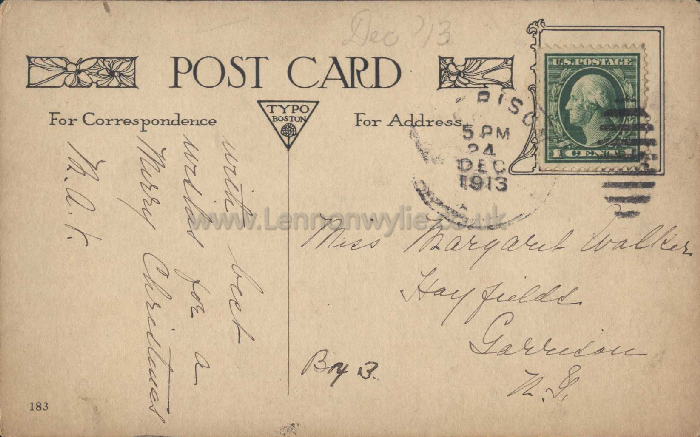 Dec '13
POST CARD
U.S. POSTAGE
1 CENT 1
For Correspondence
TYPO
BOSTON
For Address
PISC
5 PM
24
DEC
1913
with best
wishes for a
Merry Christmas
M. A. F.
www.Lennonwylie.co.uk
Miss Margaret Walker
Hayfields
Garrison
N.Y.
Box 3.
183